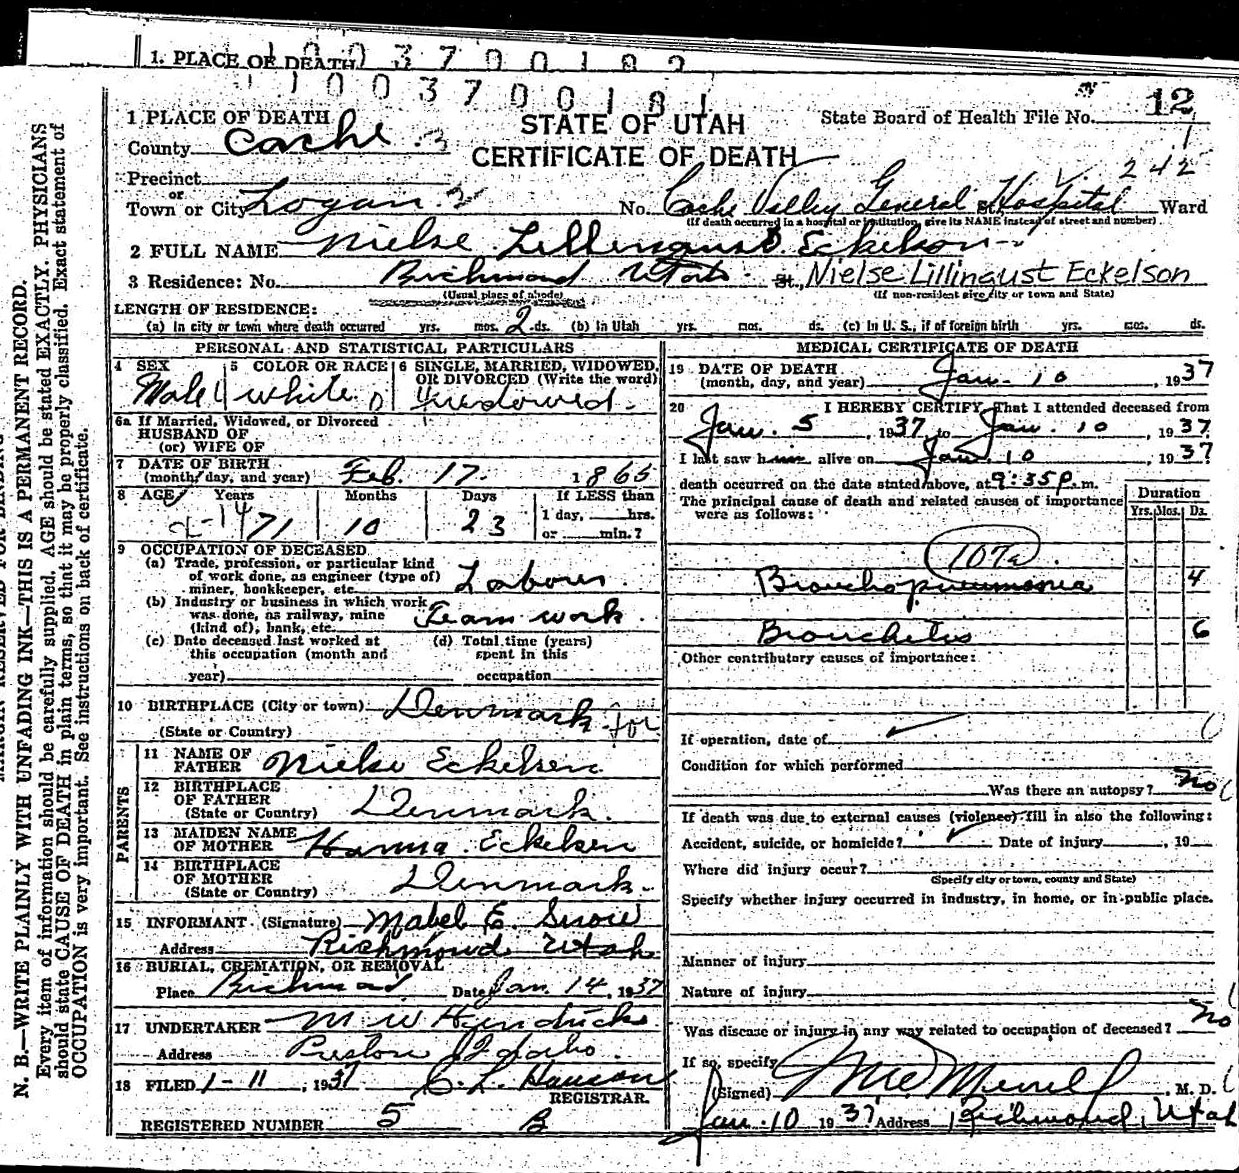 1. PLACE OF DEATH 1 0 0 3 7 0 0 1 8 2
1 0 0 3 7 0 0 1 8 1
12
1 PLACE OF DEATH
STATE OF UTAH
State Board of Health File No.
County Cache 3
CERTIFICATE OF DEATH
242
Precinct
or
Town or City Logan 2 No. Cache Valley General Hospital St. Ward
(If death occurred in a hospital or institution, give its NAME instead of street and number)
2 FULL NAME Nielse Lillinquist Eckelson
3 Residence: No. Richmond Utah St., Nielse Lillinqust Eckelson
(Usual place of abode) (If non-resident give city or town and State)
LENGTH OF RESIDENCE:
(a) In city or town where death occurred yrs. mos. 2 ds. (b) In Utah yrs. mos. ds. (c) In U. S., if of foreign birth yrs. mos. ds.
PERSONAL AND STATISTICAL PARTICULARS
4 SEX 5 COLOR OR RACE 6 SINGLE, MARRIED, WIDOWED, OR DIVORCED (Write the word)
Male white widowed
6a If Married, Widowed, or Divorced
HUSBAND OF
(or) WIFE OF
7 DATE OF BIRTH
(month, day, and year) Feb. 17. 1865
8 AGE Years Months Days If LESS than
1 day, hrs.
71 10 23 or min.?
9 OCCUPATION OF DECEASED
(a) Trade, profession, or particular kind
of work done, as engineer (type of)
miner, bookkeeper, etc. Laborer
(b) Industry or business in which work
was done, as railway, mine
(kind of), bank, etc. Team work
(c) Date deceased last worked at
this occupation (month and
year)
(d) Total time (years)
spent in this
occupation
10 BIRTHPLACE (City or town) Denmark
(State or Country)
PARENTS
11 NAME OF
FATHER Nielse Eckelsen
12 BIRTHPLACE
OF FATHER
(State or Country) Denmark.
13 MAIDEN NAME
OF MOTHER Hanna Eckelsen
14 BIRTHPLACE
OF MOTHER
(State or Country) Denmark.
15 INFORMANT (Signature) Mabel E. Snow
Address Richmond Utah
16 BURIAL, CREMATION, OR REMOVAL
Place Richmond, Date Jan. 14, 1937
17 UNDERTAKER M W Hendricks
Address Preston Idaho.
18 FILED 1-11, 1937 C. L. Hanson
REGISTRAR.
REGISTERED NUMBER 5 B
MEDICAL CERTIFICATE OF DEATH
19 DATE OF DEATH
(month, day, and year) Jan. 10, 1937
20 I HEREBY CERTIFY, That I attended deceased from
Jan. 5, 1937, to Jan. 10, 1937.
I last saw him alive on Jan. 10, 1937
death occurred on the date stated above, at 9:35P. m.
The principal cause of death and related causes of importance
were as follows:
Duration
Yrs. Mos. Ds.
107a
Bronchopneumonia 4
Bronchitis 6
Other contributory causes of importance:
If operation, date of
Condition for which performed
Was there an autopsy? No
If death was due to external causes (violence) fill in also the following:
Accident, suicide, or homicide? Date of injury, 19
Where did injury occur?
(Specify city or town, county and State)
Specify whether injury occurred in industry, in home, or in public place.
Manner of injury
Nature of injury
Was disease or injury in any way related to occupation of deceased? No
If so, specify
(Signed) Merrill, M. D.
Jan. 10 1937 Address Richmond, Utah
N. B.—WRITE PLAINLY WITH UNFADING INK—THIS IS A PERMANENT RECORD.
Every item of information should be carefully supplied. AGE should be stated EXACTLY. PHYSICIANS
should state CAUSE OF DEATH in plain terms, so that it may be properly classified. Exact statement of
OCCUPATION is very important. See instructions on back of certificate.